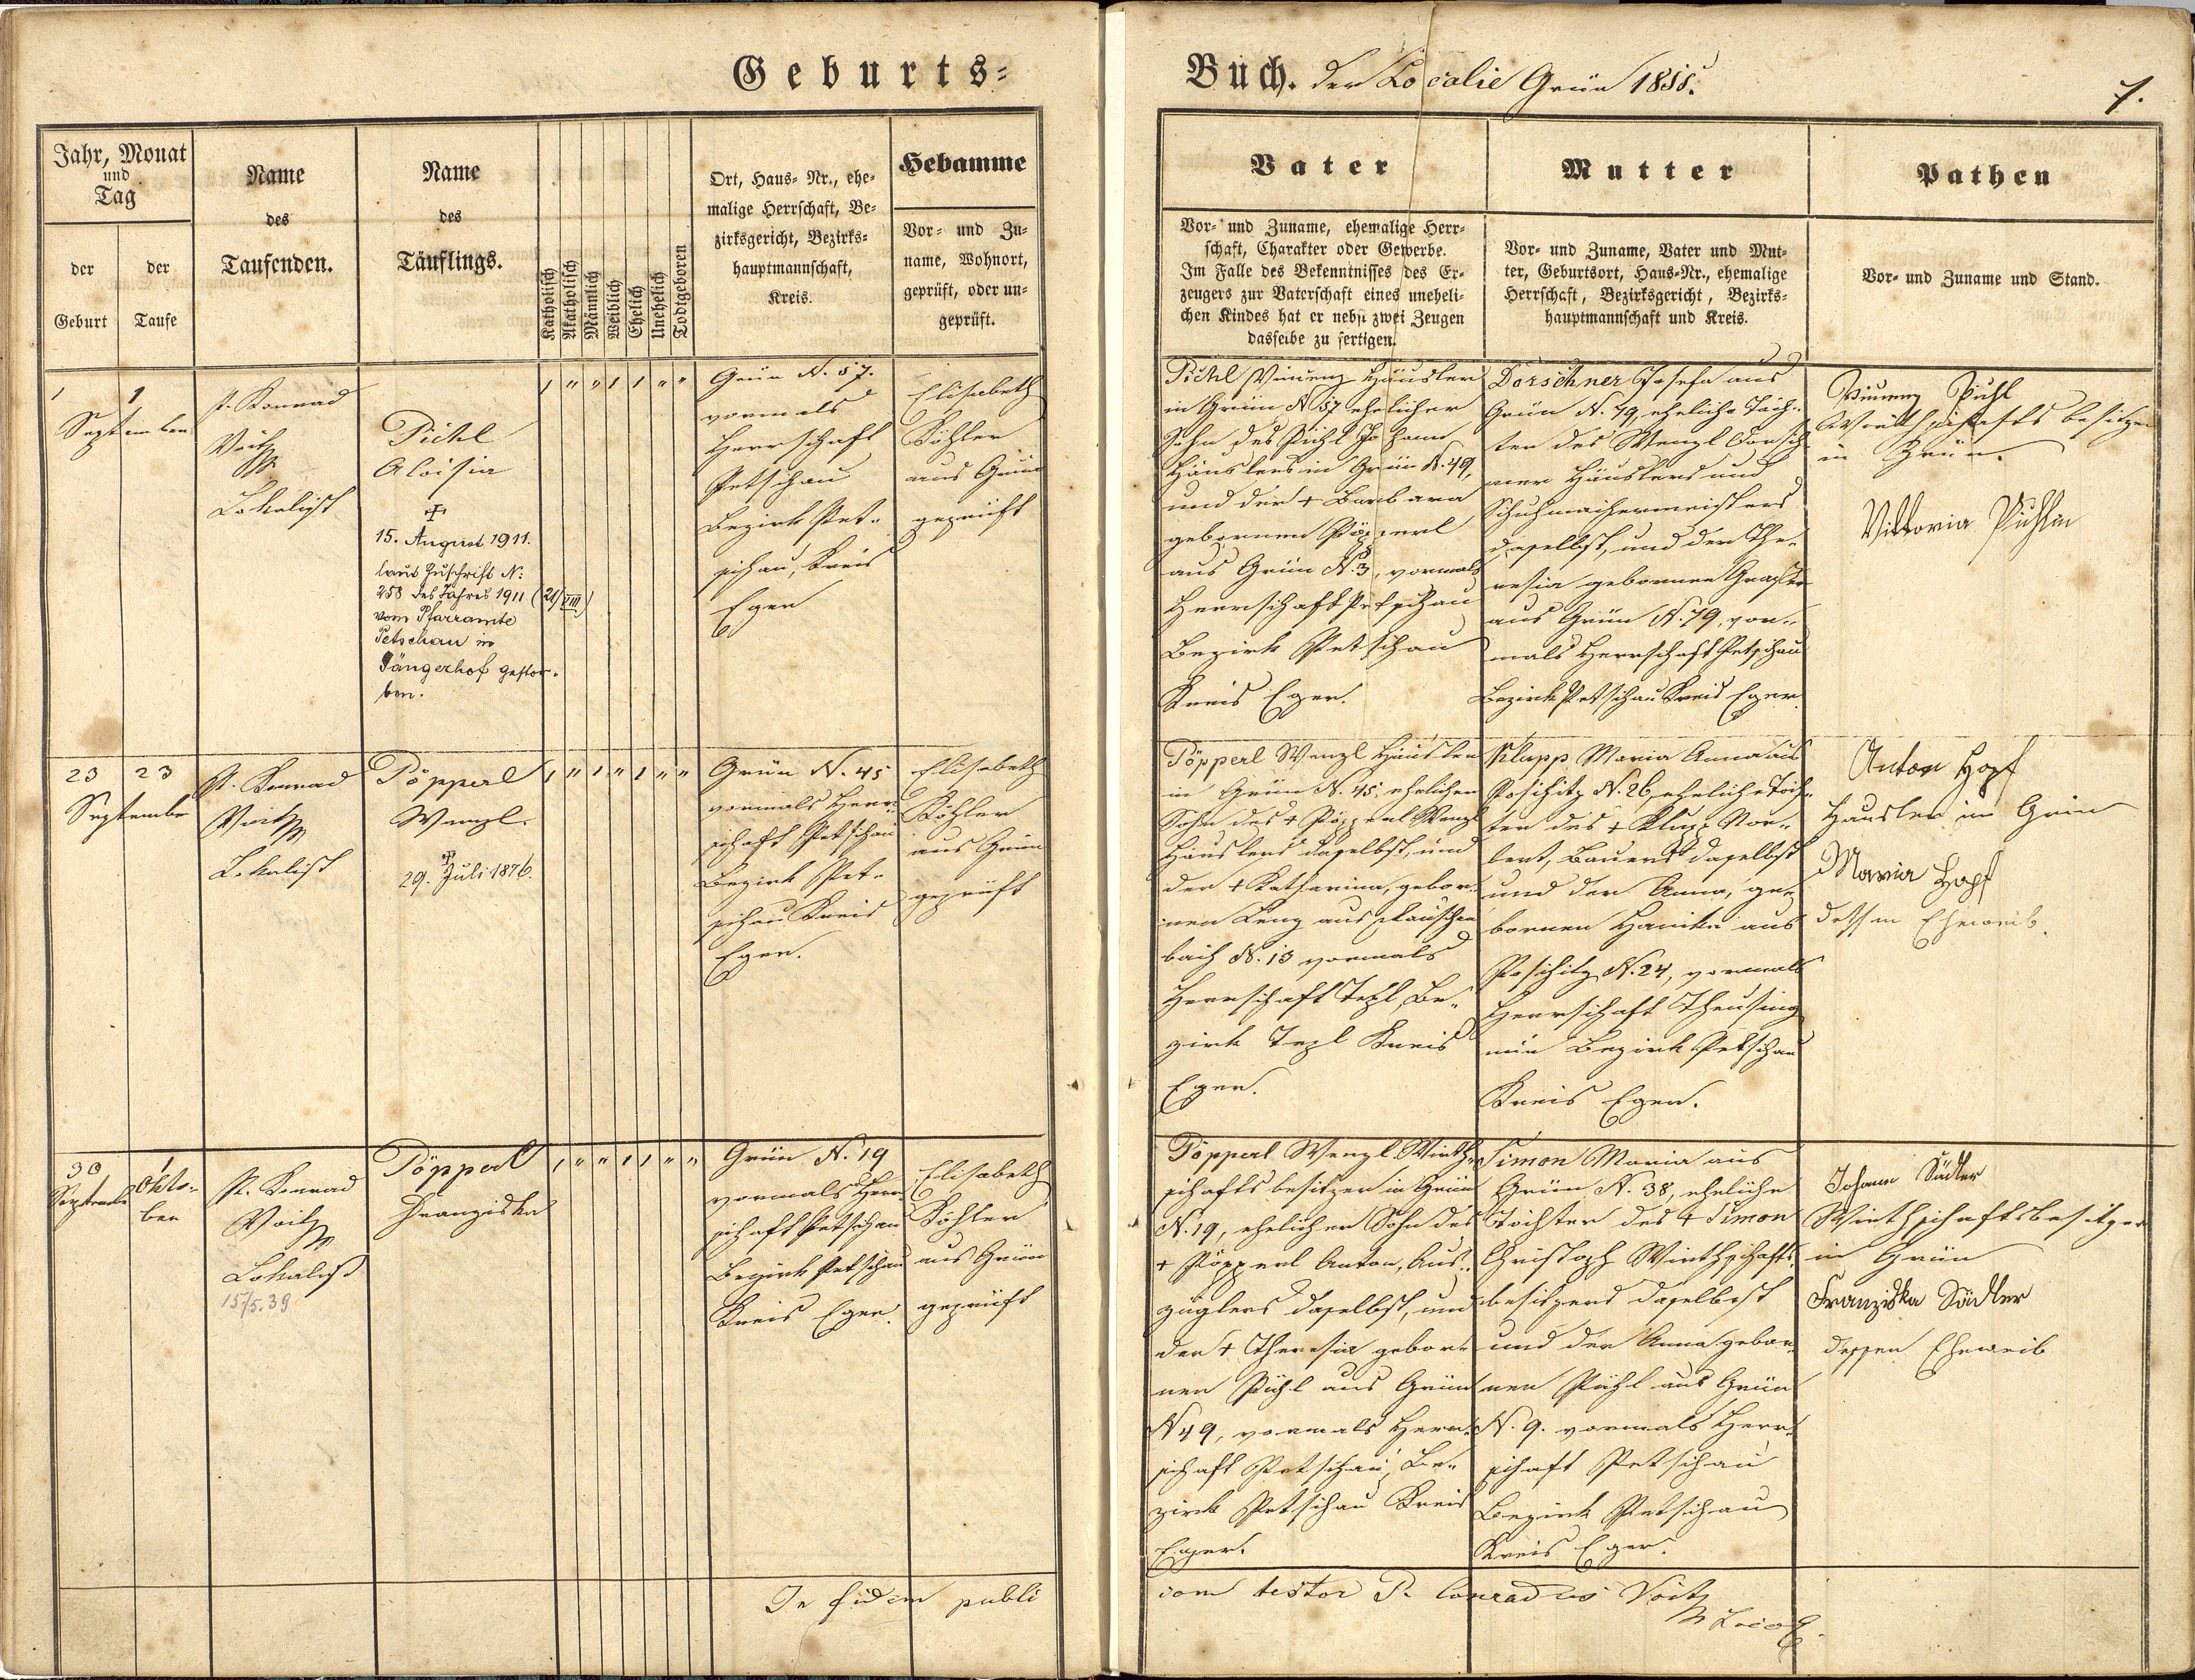 Geburts=
Buch. der Localie Grün 1855.
1.
Jahr, Monat
und
Tag
der
Geburt
der
Taufe
Name
des
Taufenden.
Name
des
Täuflings.
Katholisch
Akatholisch
Männlich
Weiblich
Ehelich
Unehelich
Todtgeboren
Ort, Haus= Nr., ehe=
malige Herrschaft, Be=
zirksgericht, Bezirks=
hauptmannschaft,
Kreis.
Hebamme
Vor= und Zu=
name, Wohnort,
geprüft, oder un=
geprüft.
Vater
Vor= und Zuname, ehemalige Herr=
schaft, Charakter oder Gewerbe.
Im Falle des Bekenntnisses des Er=
zeugers zur Vaterschaft eines uneheli=
chen Kindes hat er nebst zwei Zeugen
dasselbe zu fertigen.
Mutter
Vor= und Zuname, Vater und Mut=
ter, Geburtsort, Haus=Nr., ehemalige
Herrschaft, Bezirksgericht, Bezirks=
hauptmannschaft und Kreis.
Pathen
Vor= und Zuname und Stand.
1 1
September
P. Konrad
Voith
Lokalist
Pichl
Aloisia
+
15. August 1911.
laut Zuschrift N:
258 des Jahres 1911 (21/VIII)
vom Pfarramte
Petschau in
Sängerhof gestor-
ben.
1 " " 1 1 " "
Grün N. 57.
vormals
Herrschaft
Petschau
Bezirk Pet-
schau, Kreis
Eger
Elisabeth
Köhler
aus Grün
geprüft
Pichl Vinzenz Häusler
in Grün N 57 ehelicher
Sohn des Pichl Johann
Häuslers in Grün N. 49,
und der + Barbara
gebornen Pöpperl
aus Grün N. 3, vormals
Herrschaft Petschau
Bezirk Petschau
Kreis Eger.
Dorschner Josefa aus
Grün N. 79, eheliche Toch-
ter des Wenzl Dorsch-
ner Häuslers und
Schuhmachermeisters
daselbst, und der The-
resia gebornen
aus Grün N. 79, vor-
mals Herrschaft Petschau
Bezirk Petschau Kreis Eger.
Vinzenz Pichl
Wirthschaftsbesitzer
in Grün.
Viktoria Pichlin
23 23
September
P. Konrad
Voith
Lokalist
Pöpperl
Wenzl.
+
29. Juli 1876.
1 " 1 " 1 " "
Grün N. 45
vormals Herr-
schaft Petschau
Bezirk Pet-
schau Kreis
Eger.
Elisabeth
Köhler
aus Grün
geprüft
Pöpperl Wenzl Häusler
in Grün N. 45, ehelicher
Sohn des + Pöpperl Wenzl
Häuslers daselbst, und
der + Katharina, gebor-
nen Lenz aus
bach N. 13 vormals
Herrschaft Tepl, Be-
zirk Tepl Kreis
Eger.
Klupp Maria Anna aus
Poschitz N. 26, eheliche Toch-
ter des + Klupp Nor-
bert, Bauers daselbst
und der Anna, ge-
bornen aus
Poschitz N. 24, vormals
Herrschaft Theusing
nun Bezirk Petschau
Kreis Eger.
Anton Hopf
Häusler in Grün
Maria Hopf
dessen Eheweib.
30
September
1
Okto-
ber
P. Konrad
Voith
Lokalist
15/5.39
Pöpperl
Franziska
1 " " 1 1 " "
Grün N. 19
vormals Herr-
schaft Petschau
Bezirk Petschau
Kreis Eger.
Elisabeth
Köhler
aus Grün
geprüft
Pöpperl Wenzl Wirth-
schaftsbesitzer in Grün
N. 19, ehelicher Sohn des
+ Pöpperl Anton, Aus-
züglers daselbst, und
der + Theresia gebor-
nen Pichl aus Grün
N 49, vormals Herr-
schaft Petschau, Be-
zirk Petschau Kreis
Eger.
Simon Maria aus
Grün N. 38, eheliche
Tochter des + Simon
Christoph Wirthschafts-
besitzers daselbst
und der Anna gebor-
nen Pichl aus Grün
N. 9. vormals Herr-
schaft Petschau
Bezirk Petschau
Kreis Eger.
Johann Sädler
Wirthschaftsbesitzer
in Grün
Franziska Sädler
dessen Eheweib
In fidem publi
cam testor P. Conradus Voith